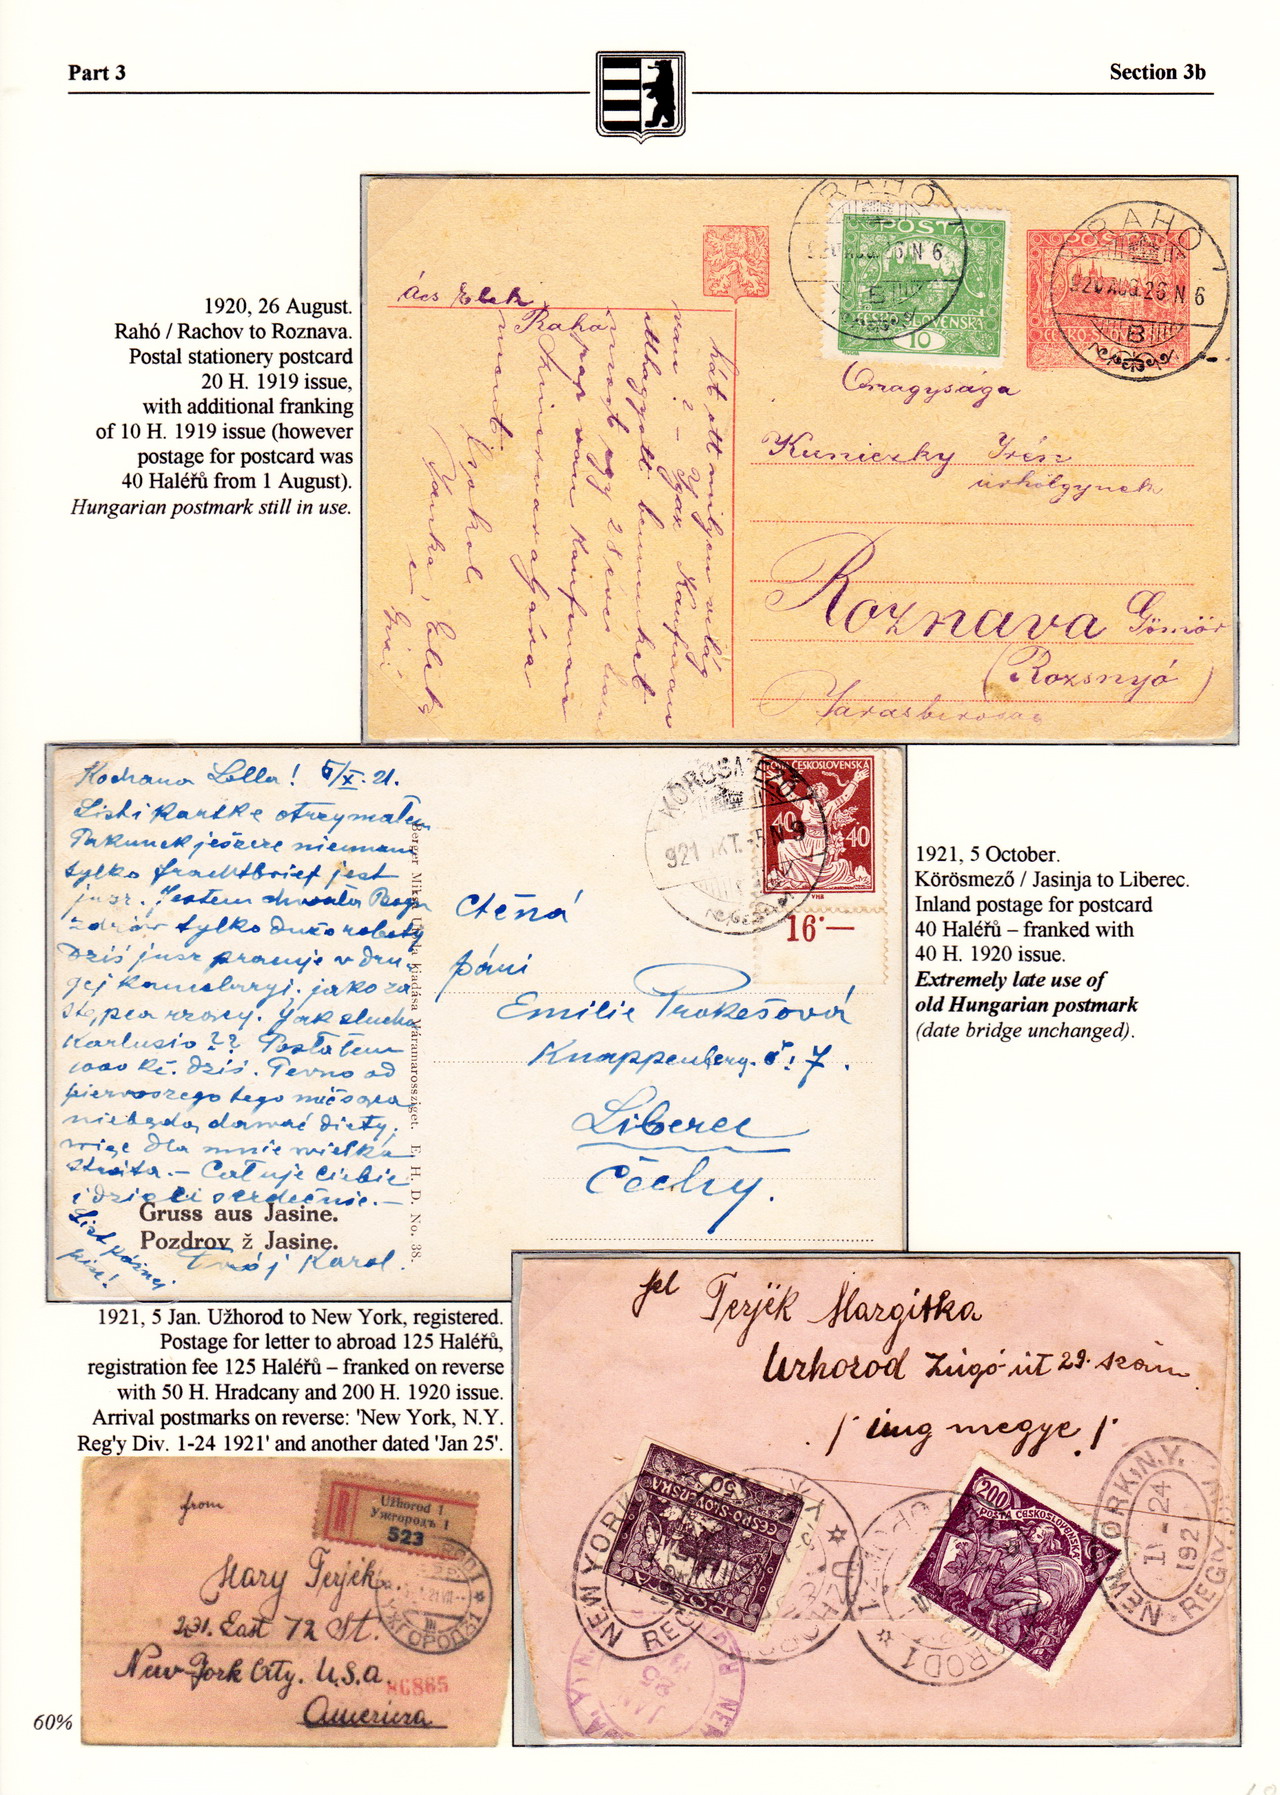 Part 3
Section 3b
1920, 26 August.
Rahó / Rachov to Roznava.
Postal stationery postcard
20 H. 1919 issue,
with additional franking
of 10 H. 1919 issue (however
postage for postcard was
40 Haléřů from 1 August).
Hungarian postmark still in use.
RAHÓ
920 AUG. 26 N 6
B
POSTA
ČESKO-SLOVENSKA
10
RAHÓ
920 AUG. 26 N 6
B
Ács Elek
Rahó
Őnagysága
Kuniczky Irén
úrhölgynek
Roznava Gömör
(Rozsnyó)
Kochana Lolla! 5/X. 21.
List i kartkę otrzymałem
Pakunek jeszcze niemam
tylko frachtbrief jest
już. Jestem chwała Bogu
zdrów tylko dużo roboty
Dziś już pracuję w dru-
giej kancelaryi. jako za-
Karlusio ?? Posłałem
1000 Kč. dziś. Pewno od
pierwszego tego
niebędą dawać diety.
więc dla mnie wielka
strata. – Całuję Ciebie
i dzieci serdecznie. –
Twój Karol.
Gruss aus Jasine.
Pozdrov ž Jasine.
Berger Miksa Utóda kiadása Máramarossziget. E. H. D. No. 38.
KŐRÖSMEZŐ
921 OKT. -5 N 9
POŠTA ČESKOSLOVENSKÁ
40 40
16·—
Ctěná
páni
Emilie Prokešová
Knappenberg. č: 7.
Liberec
Čechy.
1921, 5 October.
Körösmező / Jasinja to Liberec.
Inland postage for postcard
40 Haléřů – franked with
40 H. 1920 issue.
Extremely late use of
old Hungarian postmark
(date bridge unchanged).
1921, 5 Jan. Užhorod to New York, registered.
Postage for letter to abroad 125 Haléřů,
registration fee 125 Haléřů – franked on reverse
with 50 H. Hradcany and 200 H. 1920 issue.
Arrival postmarks on reverse: 'New York, N.Y.
Reg'y Div. 1-24 1921' and another dated 'Jan 25'.
fel Terjék Margitka
Uzhorod Zúgó út 29. szám
/ Ung megye /
50
ČESKO-SLOVENSKA
POŠTA
200
POŠTA ČESKOSLOVENSKÁ
NEW YORK, N.Y.
1-24
1921
REG'Y DIV.
JAN
25
from
R
Užhorod 1
Ужгородъ 1
523
Mary Terjék
231. East 72 St.
New-York City. U.S.A.
America
86865
60%